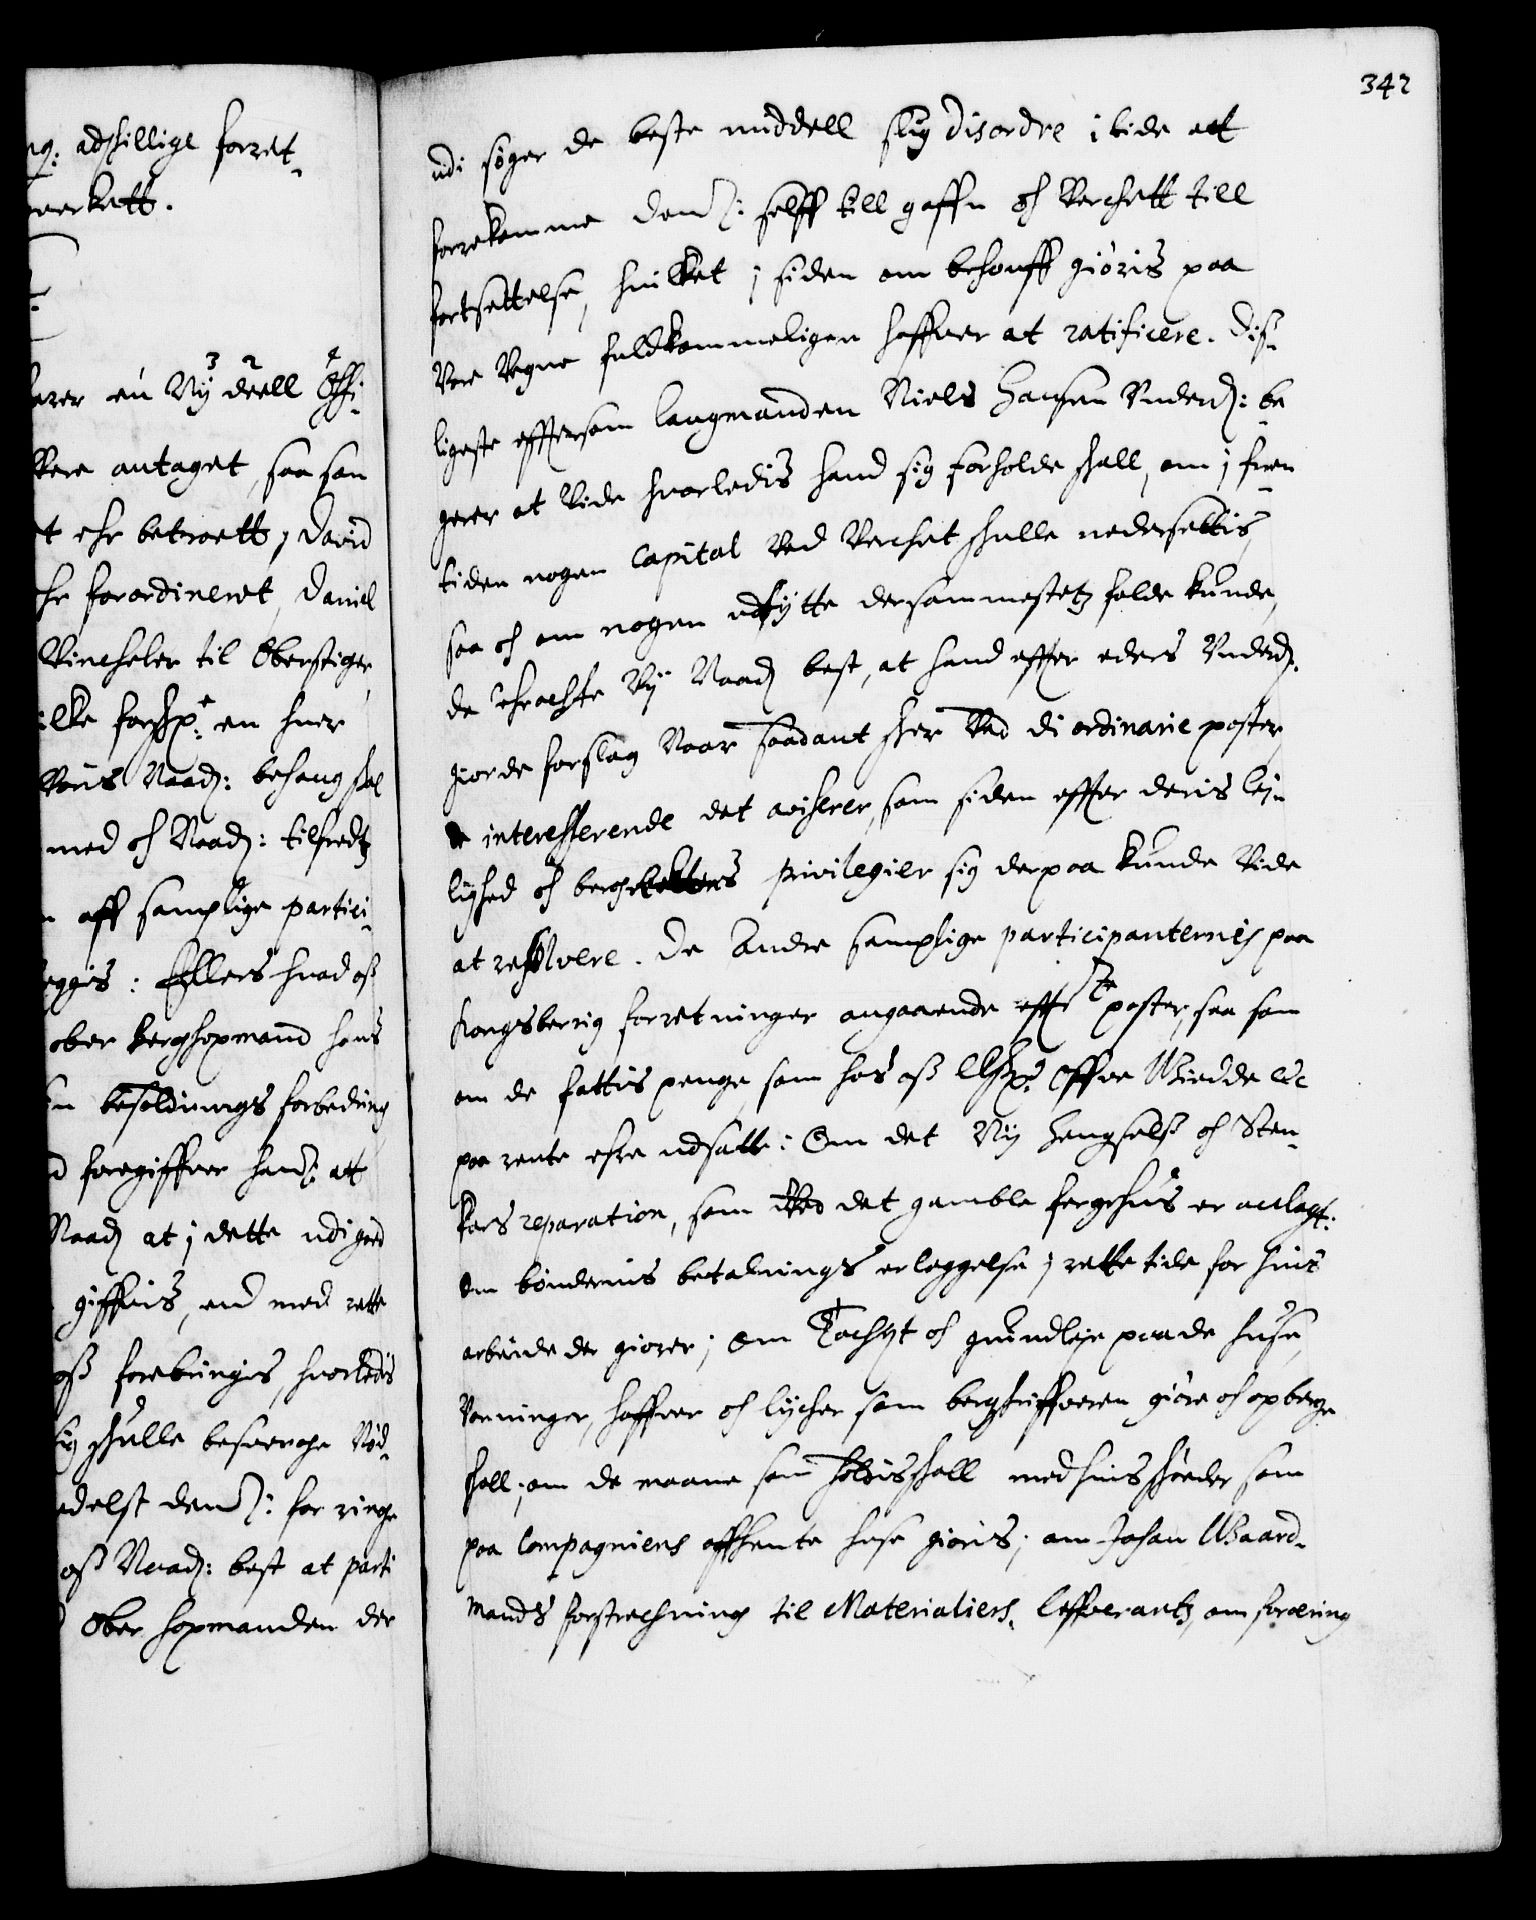 adskillige forret-
werkett.
en Nÿ deell Offi-
antaget, saa som
ehr betroett, David
ehr forordineret, Daniel
Vincheler til Oberstiger,
en huer
Voris Naad: behaug skal
med och Naad: tilfredtz
aff samptlige partici-
Ellers huad oß
ober berghopmand hans
besoldnings forbedring
foregiffuer hand: att
Naad at i dette udi god
giffuis, end med rette
oß forebringis, huorledis
skulle besuerge Nød-
for ringe
oß Naad: best at parti
Ober hopmanden der
342
udi søger de beste middell slig disordre i tide att
forrekomme dend: selff till gaffn och Verchett till
fortsettelse, huilket i siden om behouff giøris paa
Vore Vegne fuldkommeligen haffuer at ratificere. Diß-
ligeste effterson laugmanden Niels Hansen Underd: be-
gerer at Vide huorledis hand sig forholde skall, om i frem-
tiden nogen Capital Ved Verchet skulle nedersettis,
saa och om nogen udbÿtte dersammestetz falde kunde,
da erachte Vÿ Naad best, at hand effter eders Underd.
giorde forslag Naar saadant sker Ved di ordinarie poster
interesserende det aviserer, som siden effter deris lej-
lighed och berg privilegier sig derpaa kunde Vide
at resolvere. De Andre samptlige participanternis paa
Kongsberrig forretninger angaaende poster, saa som
om de fattiis penge, som hos oß Offue Giedde etc
paa rente ehre udsatte: Om det Nÿ hengselß och Sten-
kars reparation, som Ved det gamble fergehus er anlagt:
Om bøndernis betalnings erleggelse i rette tide for huis
arbeide de giorer; Om och grundleje paa de huse,
Vaaninger, haffuer och lÿcher som bergskriffueren giøre och opberge
skall; om de maane som holdis skall med huis skøeder som
paa Compagniens affhente huse gioris; om Johan Gaard-
mands forstrechning til Materialiers. leffuerantz, om foræring